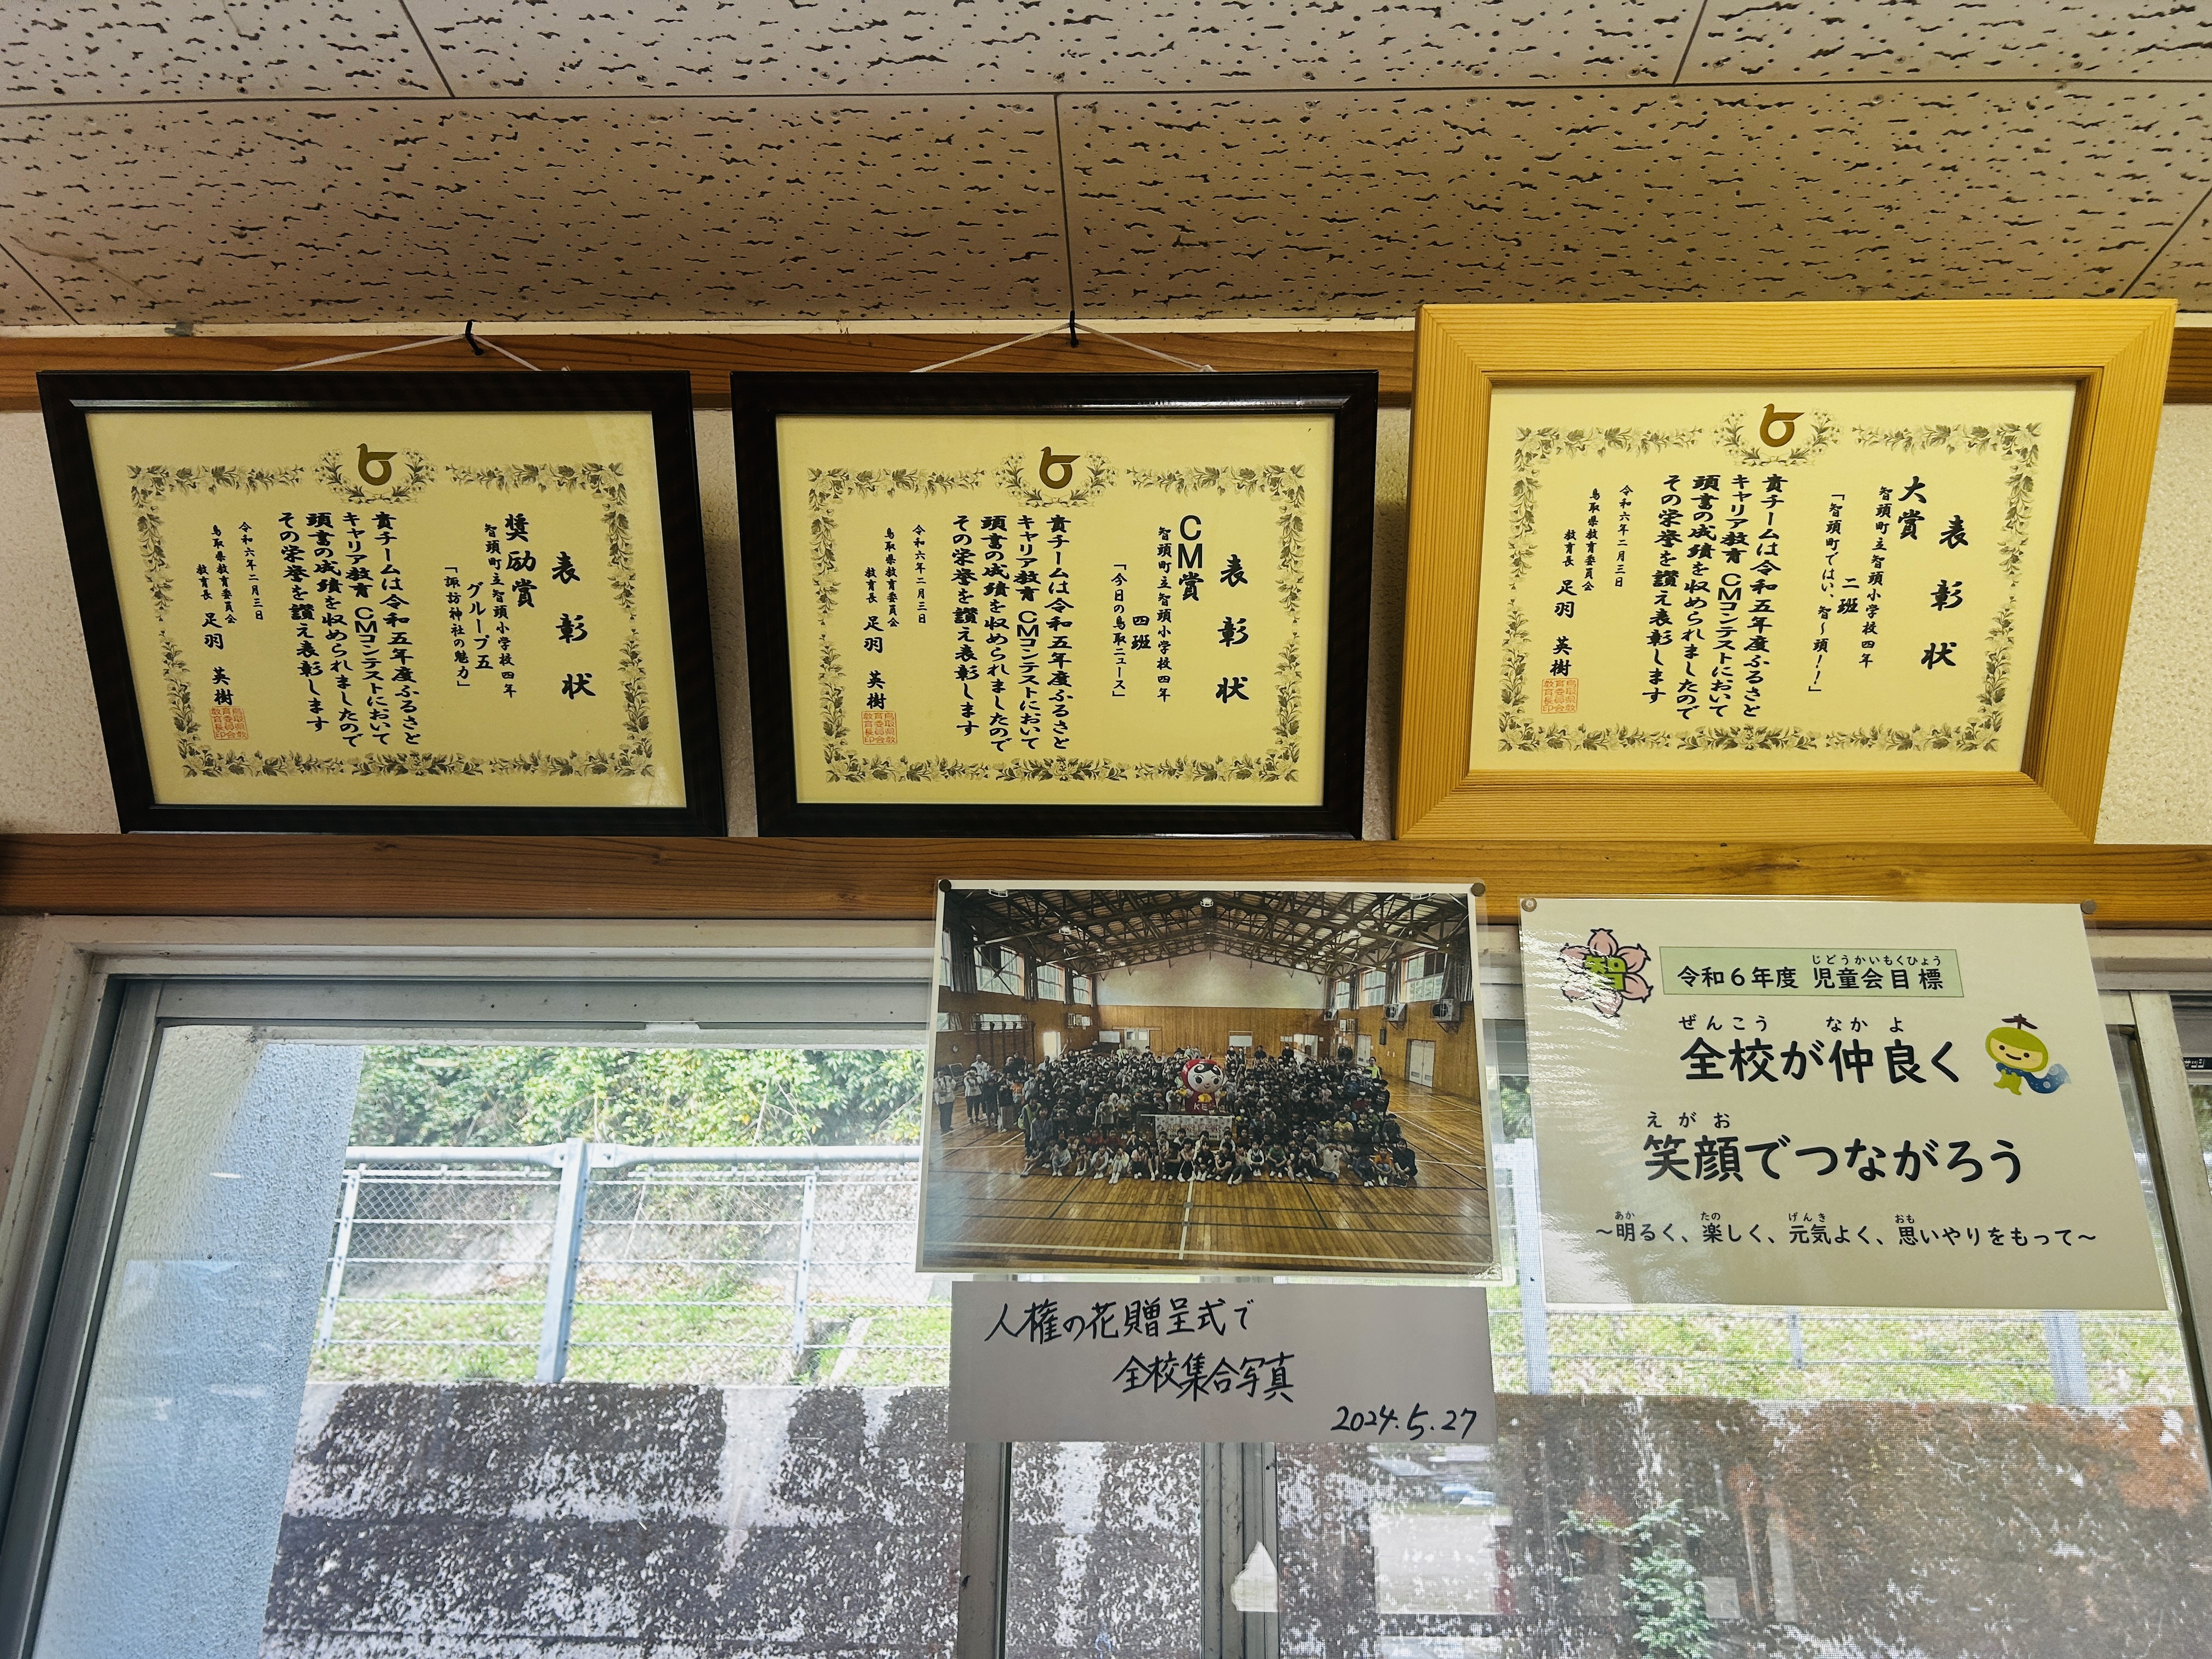 表彰状
奨励賞
智頭町立智頭小学校四年
グループ五
「諏訪神社の魅力」
貴チームは令和五年度ふるさと
キャリア教育 CMコンテストにおいて
頭書の成績を収められましたので
その栄誉を讃え表彰します
令和六年二月三日
鳥取県教育委員会
教育長 足羽 英樹
鳥取県教
育委員会
教育長印
表彰状
CM賞
智頭町立智頭小学校四年
四班
「今日の鳥取ニュース」
貴チームは令和五年度ふるさと
キャリア教育 CMコンテストにおいて
頭書の成績を収められましたので
その栄誉を讃え表彰します
令和六年二月三日
鳥取県教育委員会
教育長 足羽 英樹
鳥取県教
育委員会
教育長印
表彰状
大賞
智頭町立智頭小学校四年
二班
「智頭町ではい、智〜頭！！」
貴チームは令和五年度ふるさと
キャリア教育 CMコンテストにおいて
頭書の成績を収められましたので
その栄誉を讃え表彰します
令和六年二月三日
鳥取県教育委員会
教育長 足羽 英樹
鳥取県教
育委員会
教育長印
人権の花贈呈式で
全校集合写真
2024.5.27
智
じどうかいもくひょう
令和６年度 児童会目標
ぜんこう なかよ
全校が仲良く
えがお
笑顔でつながろう
あか たの げんき おも
〜明るく、楽しく、元気よく、思いやりをもって〜